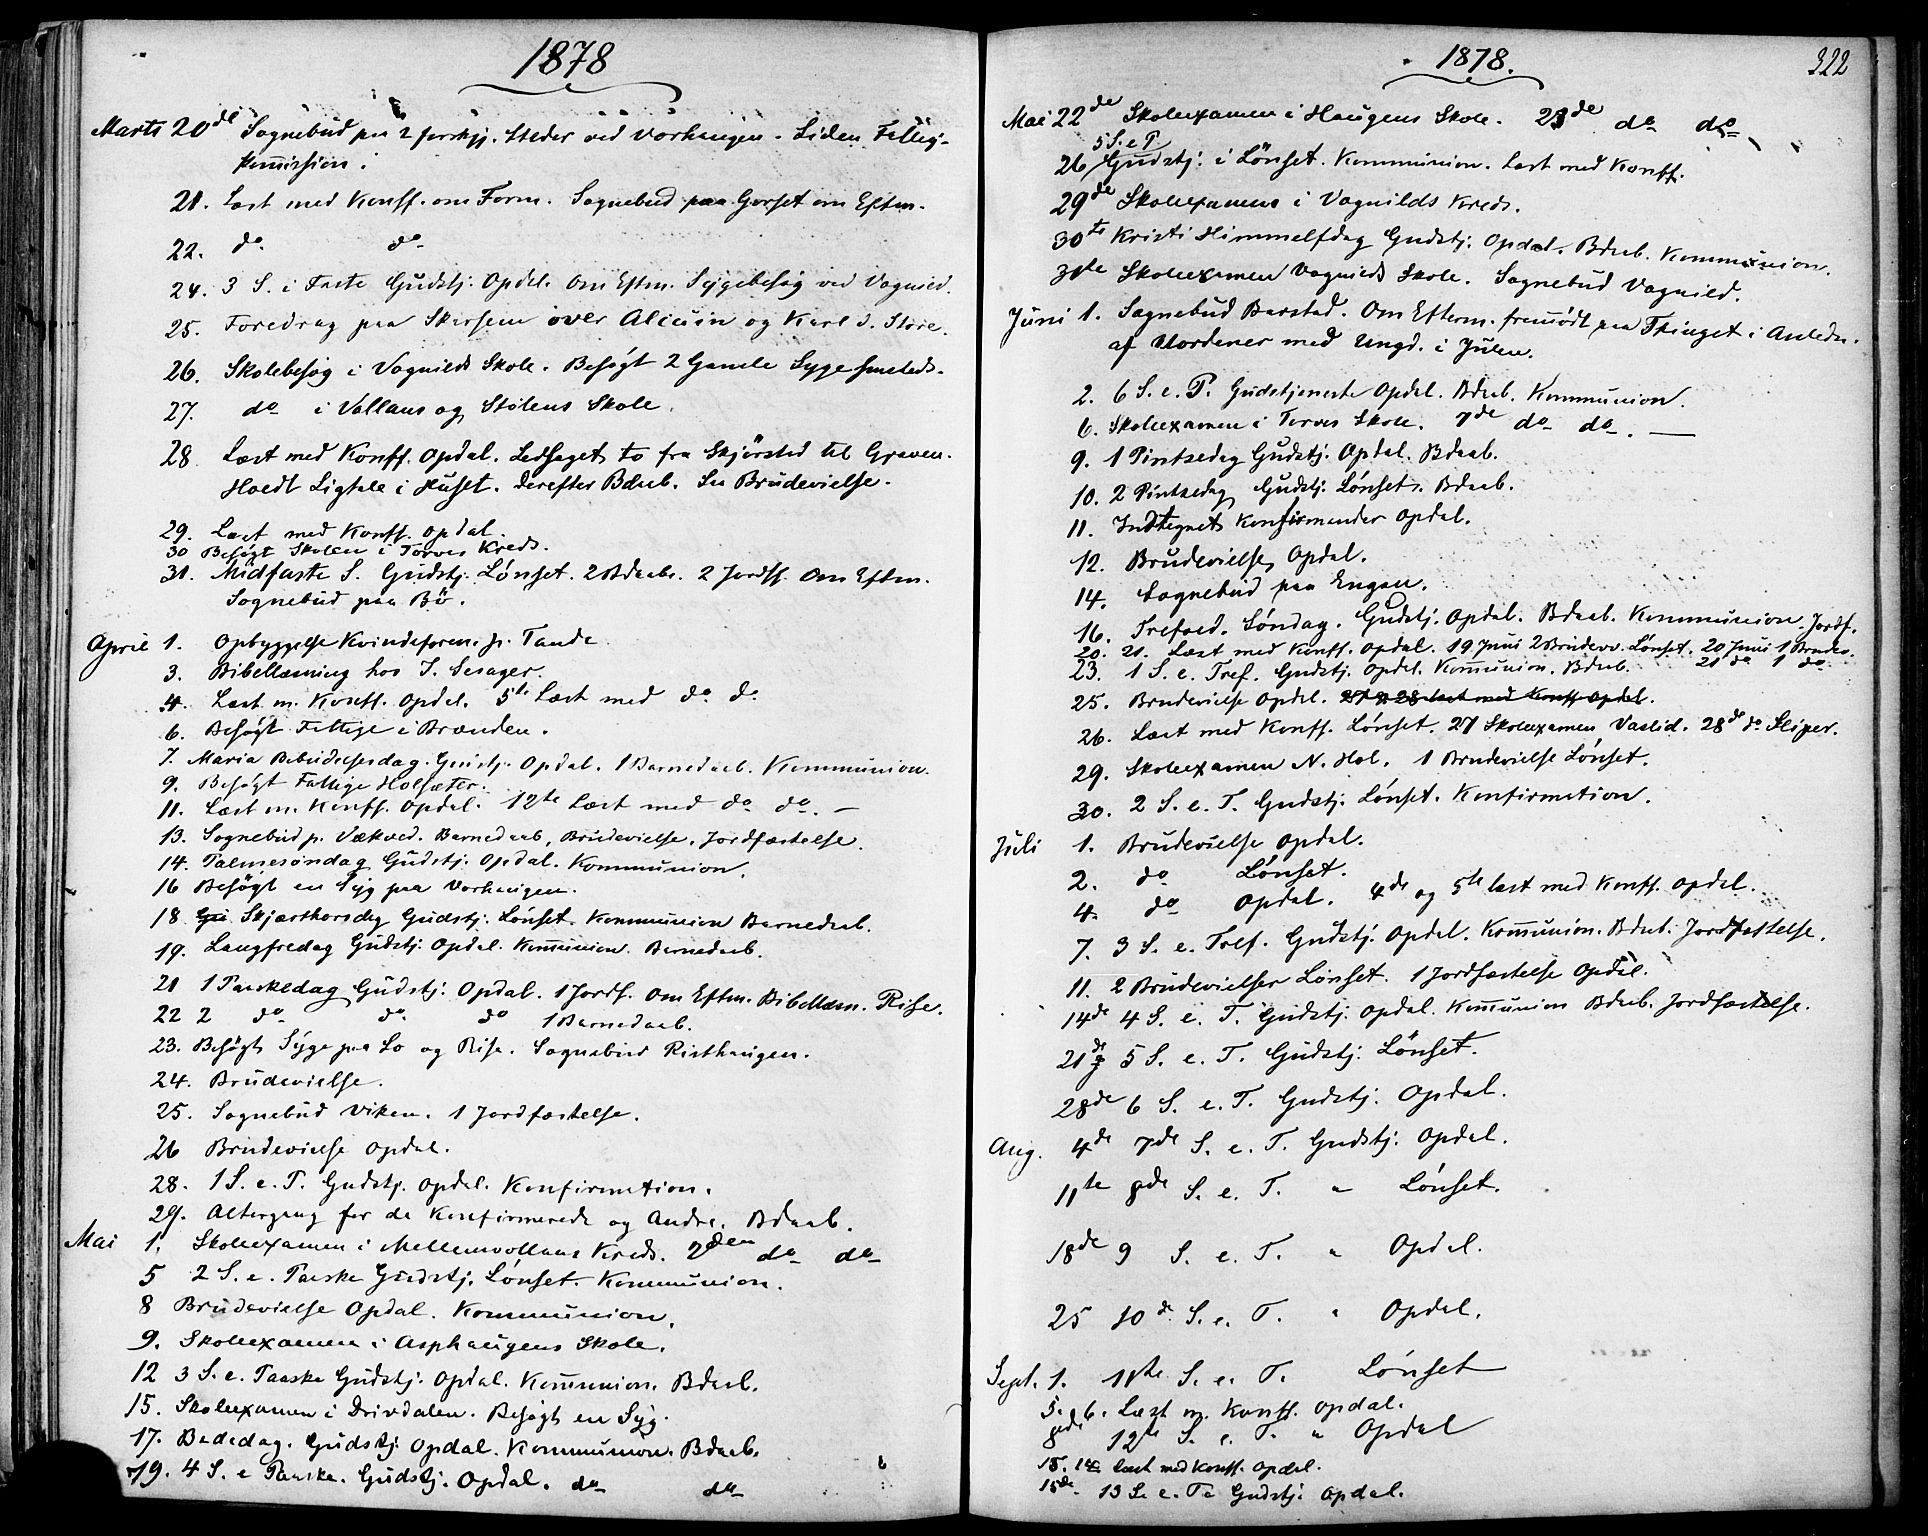 1878
Marts 20de Sognebud paa 2 forskjj. Steder ved Vorhaugen. Siden Fattig-
kommission.
21. Læst med Konff. om Form. Sognebud paa Gorset om Eftm.
22. do. do.
24. 3 S. i Faste Gudstj. Opdal. Om Eftm. Sygebesøg ved Vognild.
25. Foredrag paa Skarsem over Alcuin og Karl d. Store.
26. Skolebesøg i Vognilds Skole. Besøgt 2 Gamle Syge smsteds.
27. do i Vollans og Stølens Skole.
28. Læst med Konff. Opdal. Ledsaget to fra Skjørstad til Graven.
Holdt Ligtale i Huset. Derefter Bdaab. En Brudevielse.
29. Læst med Konff. Opdal.
30 Besøgt Skolen i Torves Kreds.
31. Midfaste S. Gudstj. Lønset. 2 Bdaabe. 2 Jordff. Om Eftm.
Sognebud paa Bö.
April 1. Opbyggelse Kvindeforen. p. Tande
3. Bibellæsning hos I. Sesager.
4. Læst m. Konff. Opdal. 5te Læst med do do
6. Besøgt Fattige i Brænden.
7. Maria Bebudelsesdag. Gudstj. Opdal. 1 Barnedaab. Kommunion.
9. Besøgt Fattige Holsæter.
11. Læst m. Konff. Opdal. 12te Læst med do do. —
13. Sognebud p. Vekved. Barnedaab, Brudevielse, Jordfæstelse.
14. Palmesøndag Gudstj. Opdal. Kommunion.
16 Besøgt en Syg paa Vorhaugen.
18. Gu Skjærthorsdag Gudstj. Lønset. Kommunion Barnedaab.
19. Langfredag Gudstj. Opdal. Kommunion. Barnedaab.
21 1 Paaskedag Gudstj. Opdal. 1 Jordf. Om Eftm. Bibellæsn. Rise.
22 2 do do. do 1 Barnedaab.
23. Besøgt Syge paa Lo og Rise. Sognebud Risthaugen.
24. Brudevielse.
25. Sognebud Viken. 1 Jordfæstelse.
26 Brudevielse Opdal.
28. 1 S. e. P. Gudstj. Opdal. Konfirmation.
29. Altergang for de Konfirmerede og Andre. Bdaab.
Mai 1. Skoleexamen i Mellemvollans Kreds. 2den do do
5 2 S. e. Paaske Gudstj. Lønset. Kommunion.
8 Brudevielse Opdal. Kommunion.
9. Skoleexamen i Asphaugens Skole.
12 3 S. e. Paaske Gudstj. Opdal. Kommunion. Bdaab.
15. Skoleexamen i Drivdalen. Besøgt en Syg.
17. Bededag. Gudstj. Opdal. Kommunion. Bdaab.
19. 4 S. e Paaske. Gudstj. Opdal. do do
1878. 322
Mai 22de Skoleexamen i Haugens Skole. 23de do do
5 S. e P.
26 Gudstj. i Lønset. Kommunion. Læst med Konff.
29de Skoleexamen i Vognilds Kreds.
30te Kristi Himmelfdag Gudstj. Opdal. Bdaab. Kommunion.
31te Skoleexamen Vognilds Skole. Sognebud Vognild.
Juni 1. Sognebud Barstad. Om Efterm. fremødt paa Thinget i Anledn.
af Uordener med Ungd. i Julen.
2. 6 S. e. P. Gudstjeneste Opdal. Bdaab. Kommunion.
6. Skoleexamen i Torves Skole. 7de do do. —
9. 1 Pintsedag Gudstj. Opdal. Bdaab.
10. 2 Pintsedag Gudstj. Lønset. Bdaab.
11. Indtegnet Konfirmander Opdal.
12. Brudevielse Opdal.
14. Sognebud paa Engan.
16. Trefold. Søndag. Gudstj. Opdal. Bdaab. Kommunion. Jordf.
20. 21. Læst med Konff. Opdal. 19 Juni 2 Brudevv. Lønset. 20 Juni 1 Brudev.
23. 1 S. e. Tref. Gudstj. Opdal. Kommunion. Bdaab. 21 do 1 do
25. Brudevielse Opdal. 27 & 28 læst med Konff Opdal.
26. Læst med Konff. Lønset. 27 Skoleexamen Vaslid. 28de do Sliper.
29. Skoleexamen N. Hol. 1 Brudevielse Lønset.
30. 2 S. e. T. Gudstj. Lønset. Konfirmation.
Juli 1. Brudevielse Opdal.
2. do Lønset.
4. do Opdal. 4de og 5te læst med Konff. Opdal.
7. 3 S. e. Tref. Gudstj. Opdal. Kommunion. Bdaab. Jordfæstelse.
11. 2 Brudevielser Lønset. 1 Jordfæstelse Opdal.
14de 4 S. e. T. Gudstj. Opdal. Kommunion Bdaab. Jordfæstelse.
21de 5 S. e. T. Gudstj. Lønset.
28de 6 S. e. T. Gudstj. Opdal.
Aug. 4de 7de S. e. T. Gudstj. Opdal.
11te 8de S. e. T. " Lønset.
18de 9 S. e. T. " Opdal.
25 10de S. e. T. " Opdal.
Sept. 1. 11te S. e. T. Lønset
5. 6. Læst m. Konff. Opdal.
8de 12te S. e. T. " Opdal
13. 14. læst med Konff. Opdal.
15de. 13 S. e. T. Gudstj. Opdal.